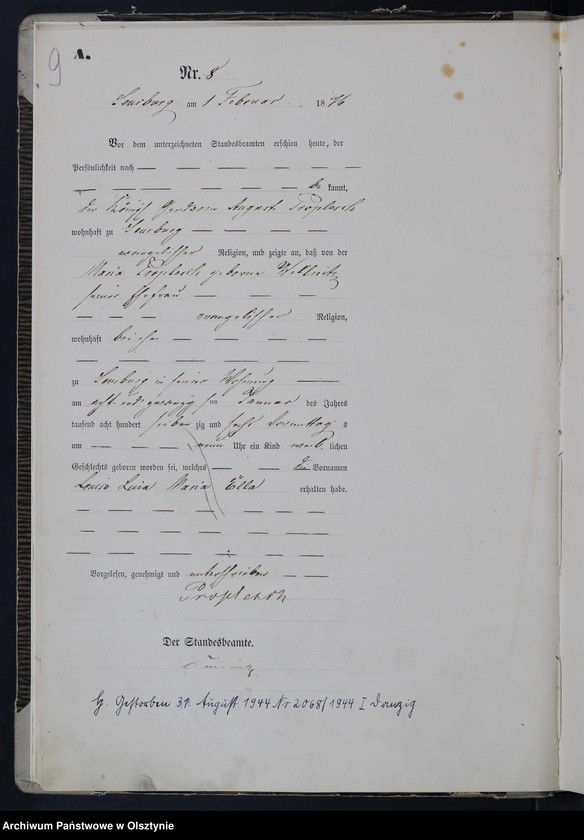 9
A.
Nr. 8
Sensburg am 1 Februar 1876
Vor dem unterzeichneten Standesbeamten erschien heute, der
Persönlichkeit nach
be kannt,
der Königl. Gendarm August
wohnhaft zu Sensburg
evangelischer Religion, und zeigte an, daß von der
Maria geborene
seiner Ehefrau
evangelischer Religion,
wohnhaft bei ihm
zu Sensburg in seiner Wohnung
am acht und zwanzigsten Januar des Jahres
tausend acht hundert sieben zig und sechs Vormittag s
um neun Uhr ein Kind weib lichen
Geschlechts geboren worden sei, welches die Vornamen
Maria Ella erhalten habe.
Vorgelesen, genehmigt und unterschrieben
Der Standesbeamte.
H. Gestorben 31. August 1944 Nr. 2068/1944 I Danzig.
Archiwum Państwowe w Olsztynie